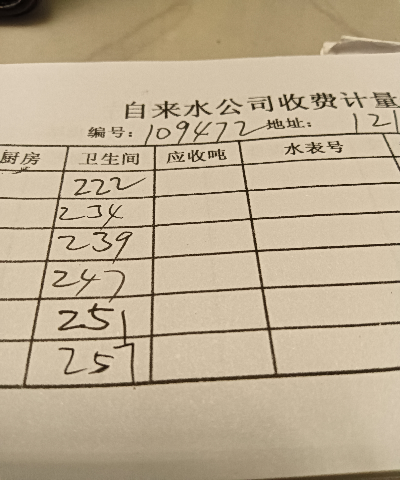 自来水公司收费计量
编号: 109472 地址: 121
厨房 卫生间 应收吨 水表号
222
234
239
247
251
257